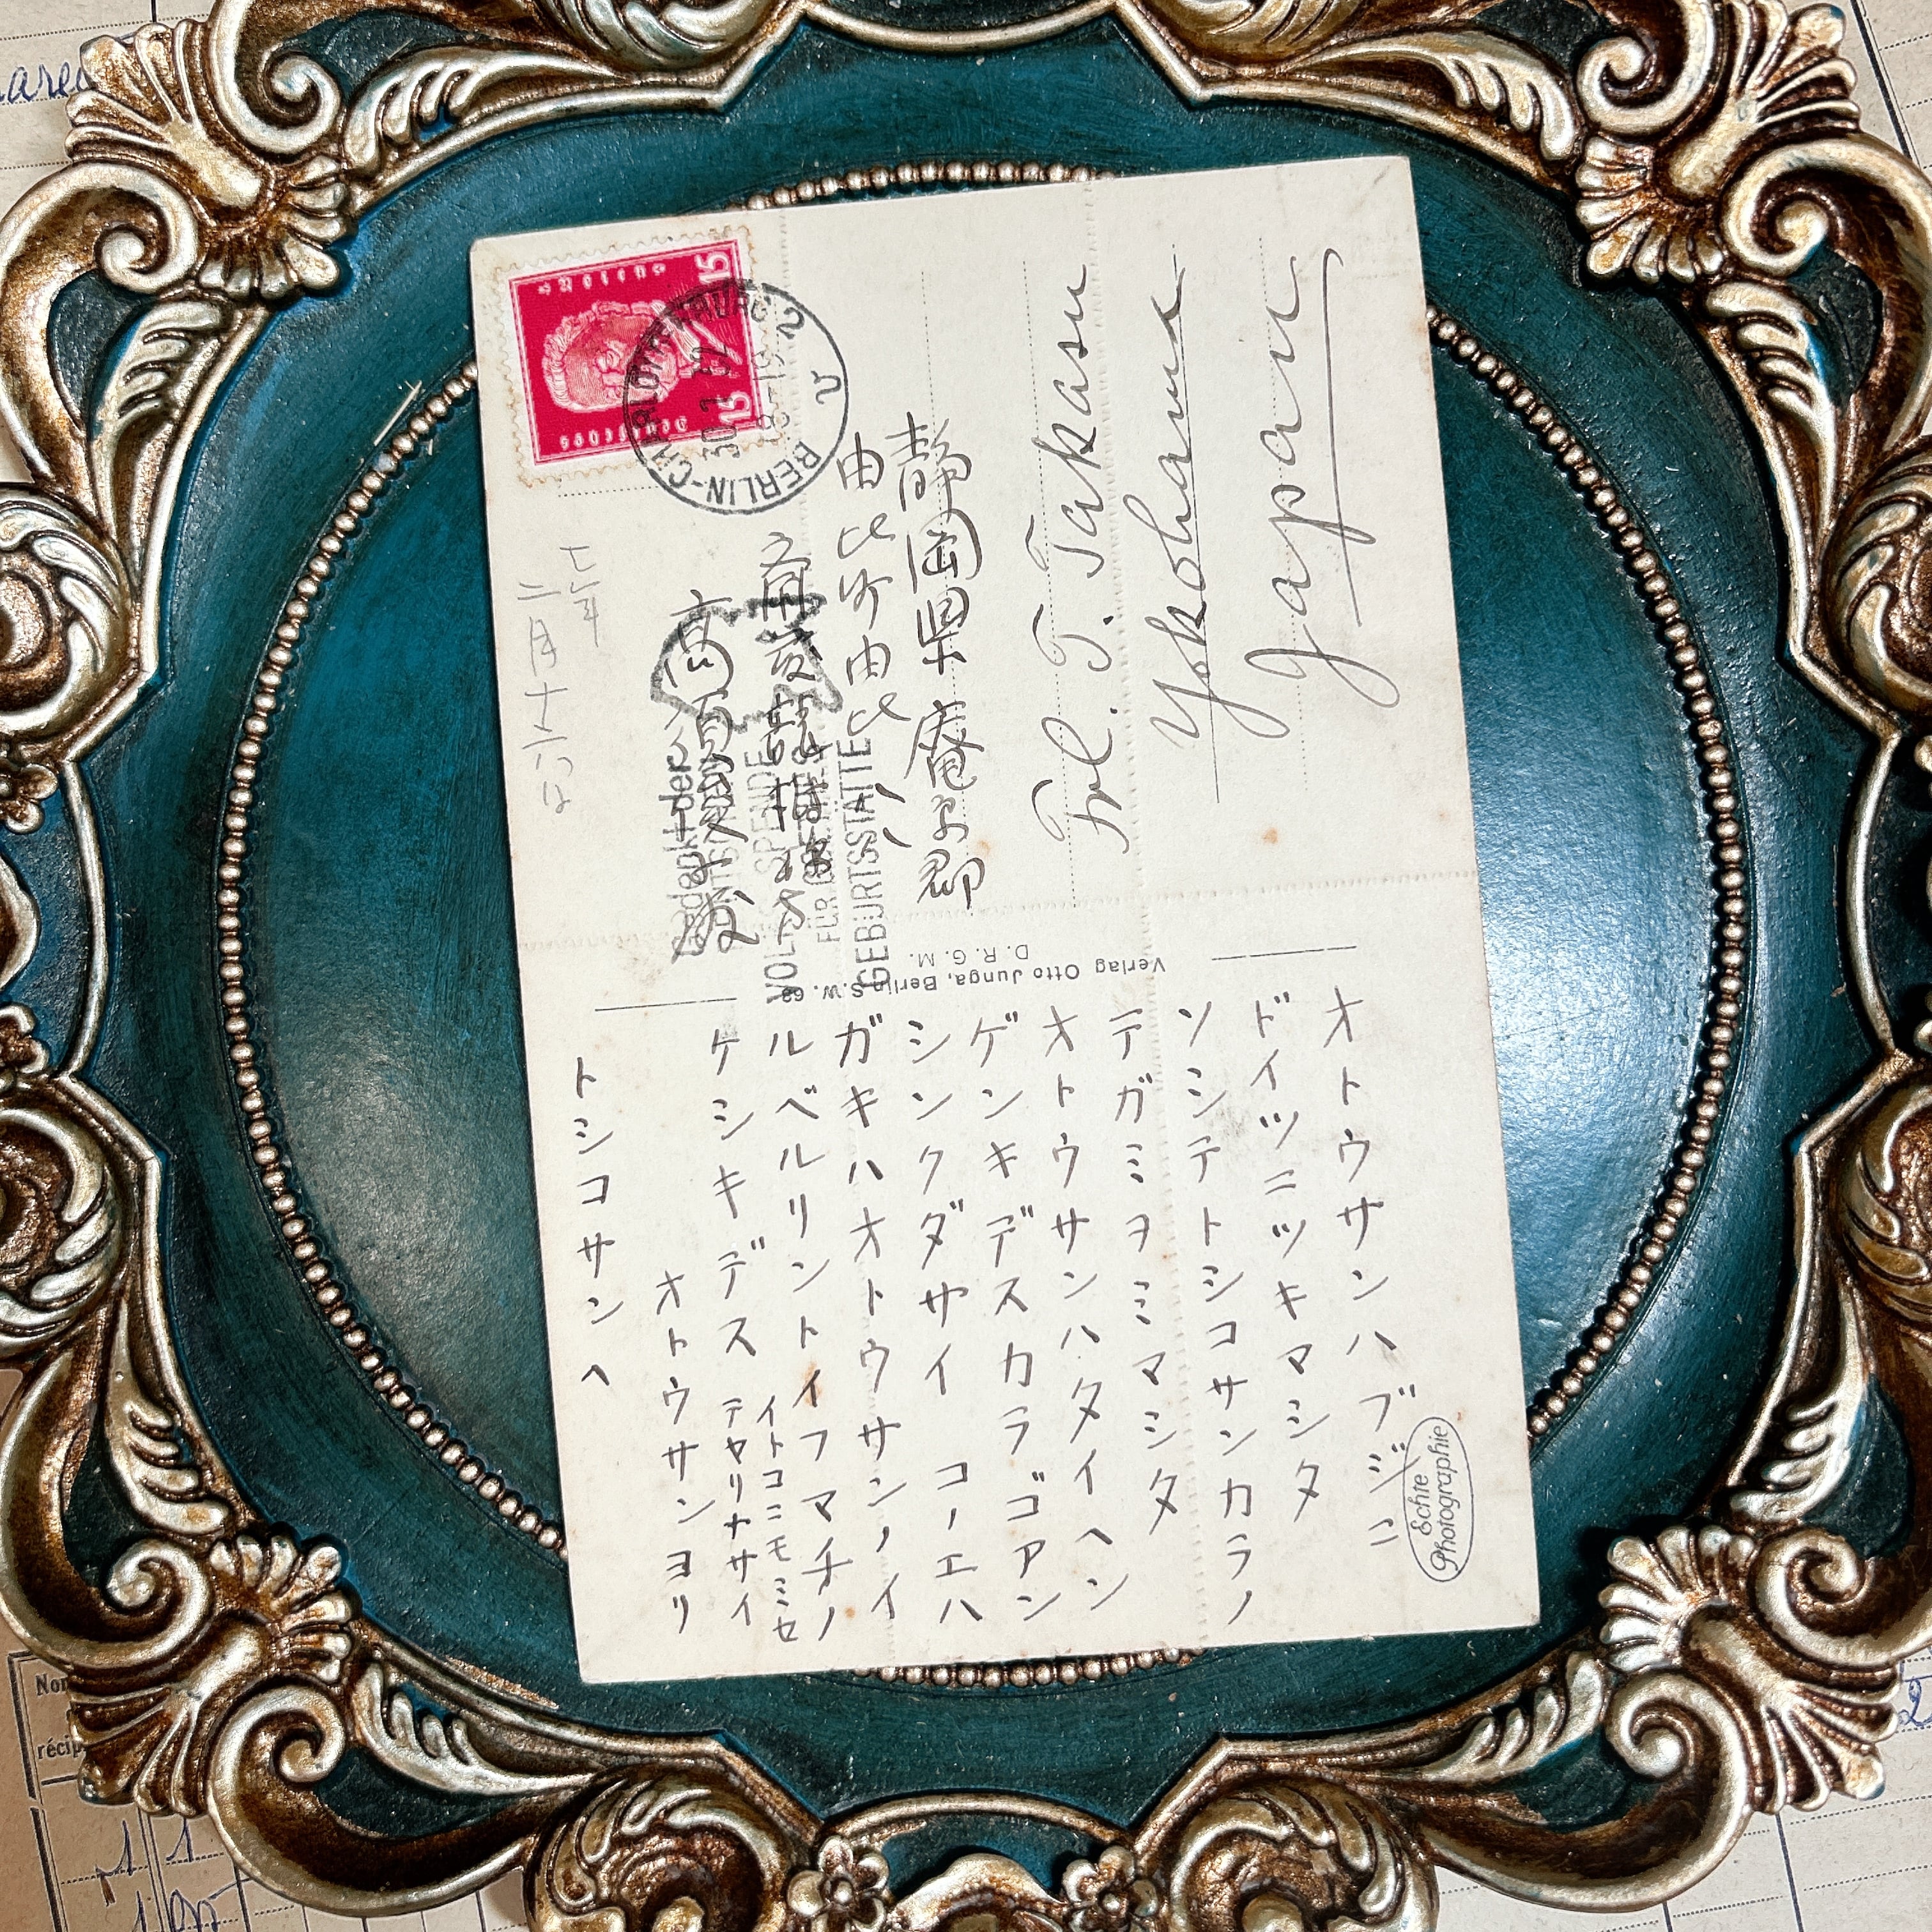 オトウサンハブジニ
ドイツニツキマシタ
ソシテトシコサンカラノ
テガミヲミマシタ
オトウサンハタイヘン
ゲンキデスカラゴアン
シンクダサイ コノエハ
ガキハオトウサンノイ
ルベルリントイフマチノ
ケシキデス
イトコニモミセ
テヤリナサイ
オトウサンヨリ
トシコサンヘ
静岡県庵原郡
由比町由比
七年
二月十八日
Frl. T. Takasu
Yokohama
Japan
Verlag Otto Junga, Berlin S.W. 68
D. R. G. M.
Echte
Photographie
BERLIN-CHARLOTTENBURG 2
15
15
Deutsches
Reich
SPENDE
GEBURTSSTÄTTE